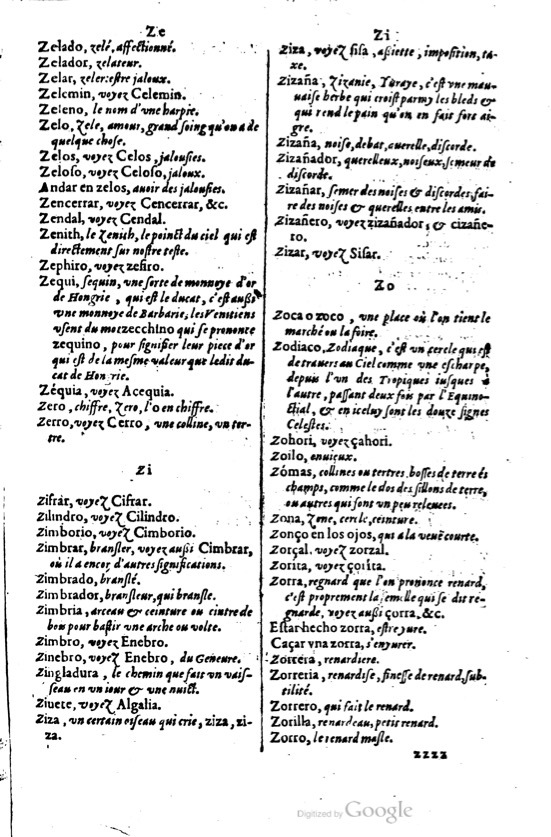 Ze
Zelado, zelé, affectionné.
Zelador, zelateur.
Zelar, zeler: estre jaloux.
Zelemin, voyez Celemin.
Zeleno, le nom d'vne harpie.
Zelo, Zele, amour, grand soing qu'on a de
quelque chose.
Zelos, voyez Celos, jalousies.
Zeloso, voyez Celoso, jaloux.
Andar en zelos, auoir des jalousies.
Zencerrar, voyez Cencerrar, &c.
Zendal, voyez Cendal.
Zenith, le Zenich, le poinct du ciel qui est
directement sur nostre teste.
Zephiro, voyez zefiro.
Zequi, sequin, vne sorte de monnoye d'or
de Hongrie, qui est le ducat, c'est aussi
vne monnoye de Barbarie; les Venitiens
vsent du mot zecchino qui se prononce
zequino, pour signifier leur piece d'or
qui est de la mesme valeur que ledit du-
cat de Hongrie.
Zéquia, voyez Acequia.
Zero, chiffre, Zero, l'o en chiffre.
Zerro, voyez Cerro, vne colline, vn ter-
tre.
Zi
Zifrar, voyez Cifrar.
Zilindro, voyez Cilindro.
Zimborio, voyez Cimborio.
Zimbrar, bransler, voyez aussi Cimbrar,
où il a encor d'autres significations.
Zimbrado, branslé.
Zimbrador, bransleur, qui bransle.
Zimbria, arceau & ceinture ou cintre de
bois pour bastir vne arche ou volte.
Zimbro, voyez Enebro.
Zinebro, voyez Enebro, du Geneure.
Zingladura, le chemin que fait vn vais-
seau en vn iour & vne nuict.
Ziuete, voyez Algalia.
Ziza, vn certain oiseau qui crie, ziza, zi-
za.
Zi
Ziza, voyez sisa, assiette, imposition, ta-
xe.
Zizaña, Zizanie, Yuraye, c'est vne mau-
uaise herbe qui croist parmy les bleds &
qui rend le pain qu'on en fait fort ai-
gre.
Zizaña, noise, debat, querelle, discorde.
Zizañador, querelleux, noiseux, semeur de
discorde.
Zizañar, semer des noises & discordes, fai-
re des noises & querelles entre les amis.
Zizañero, voyez zizañador, & cizañe-
ro.
Zizar, voyez Sisar.
Zo
Zoca o zoco, vne place où l'on tient le
marché ou la foire.
Zodiaco, Zodiaque, c'est vn cercle qui est
de trauers au Ciel comme vne escharpe,
depuis l'vn des Tropiques iusques à
l'autre, passant deux fois par l'Equino-
ctial, & en iceluy sont les douze signes
Celestes.
Zohori, voyez çahori.
Zoilo, enuieux.
Zómas, collines ou tertres, bosses de terre és
champs, comme le dos des sillons de terre,
ou autres qui sont vn peu releuees.
Zona, Zone, cercle, ceinture.
Zonço en los ojos, qui a la veuë courte.
Zorçal, voyez zorzal.
Zorita, voyez çorita.
Zorra, regnard que l'on prononce renard,
c'est proprement la femelle qui se dit re-
gnarde, voyez aussi çorra, &c.
Estar hecho zorra, estre yure.
Caçar vna zorra, s'enyurer.
Zorrera, renardiere.
Zorreria, renardise, finesse de renard, sub-
tilité.
Zorrero, qui fait le renard.
Zorilla, renardeau, petit renard.
Zorro, le renard masle.
zzzz
Digitized by Google